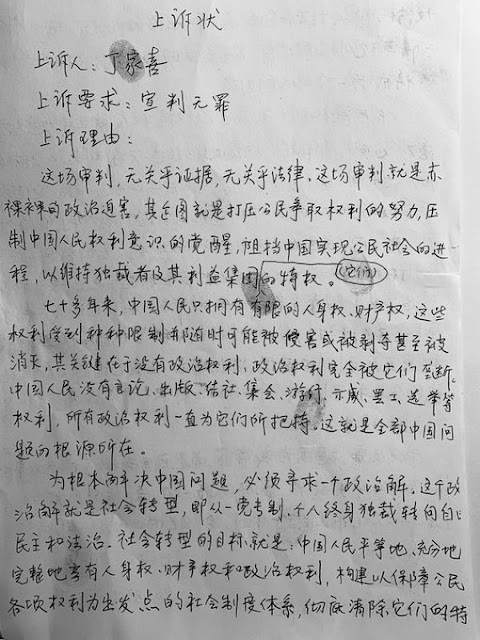 上诉状
上诉人：丁家喜
上诉要求：宣判无罪
上诉理由：
这场审判，无关乎证据，无关乎法律，这场审判就是赤
裸裸的政治迫害，其企图就是打压公民争取权利的努力，压
制中国人民权利意识的觉醒，阻挡中国实现公民社会的进
程，以维持独裁者及其利益集团（它们）的特权。
七十多年来，中国人民只拥有有限的人身权、财产权，这些
权利受到种种限制并随时可能被侵害或被剥夺甚至被
消灭，其关键在于没有政治权利，政治权利完全被它们垄断。
中国人民没有言论、出版、结社、集会、游行、示威、罢工、选举等
权利，所有政治权利一直为它们所把持。这就是全部中国问
题的根源所在。
为根本解决中国问题，必须寻求一个政治解。这个政
治解就是社会转型，即从一党专制、个人终身独裁转向自由
民主和法治。社会转型的目标就是：中国人民平等地、充分地、
完整地享有人身权、财产权和政治权利，构建以保障公民
各项权利为出发点的社会制度体系，彻底清除它们的特